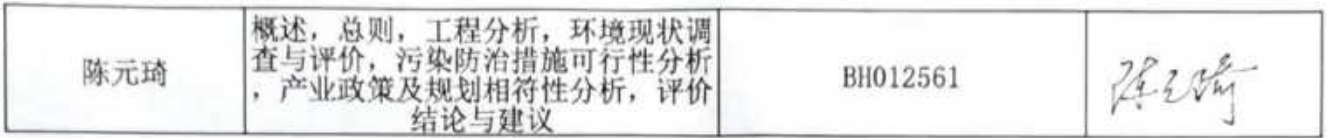 陈元琦
概述，总则，工程分析，环境现状调
查与评价，污染防治措施可行性分析
，产业政策及规划相符性分析，评价
结论与建议
BH012561
陈元琦